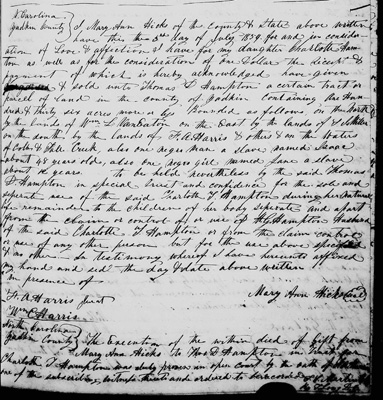 N. Carolina
Yadkin County } I Mary Ann Hicks of the County & State above written
have this the 3rd day of July 1859 for and in consider-
ation of Love & affection I have for my daughter Charlotte Hamp-
ton as well as for the consideration of one Dollar the receipt &
payment of which is hereby acknowledged have given
& sold unto Thomas D Hampton a certain tract or
parcel of land in the county of Yadkin containing One Hun-
dred & thirty six acres more or less Bounded as follows on the North
by the lands of Wm L on the East by the lands of
on the south by the lands of F. A. Harris & others & on the Waters
of & Hill Creek also one negro man a slave named
about 48 years old, also one negro girl named Jane a slave
about years. to be held nevertheless by the said Thomas
D Hampton in special trust and confidence for the sole and
seperate use of the said Charlotte T Hampton during her natural
life remainder to the children of her body seperate and apart
from the claim or control of or use of Hampton Husband
of the said Charlotte T Hampton or from the claim control
or use of any other person but for the use above specified
& no other In testimony whereof I have hereunto affixed
my hand and seal the day & date above written
in presence of
Mary Ann Hicks (Seal)
F. A. Harris Jurat
Wm C Harris
North Carolina
Yadkin County } The Execution of the within deed of Gift from
Mary Ann Hicks to Thos D Hampton in trust for
Charlotte T Hampton was duly proven in open court by the oath of
one of the subscribing witness thereto and ordered to be recorded